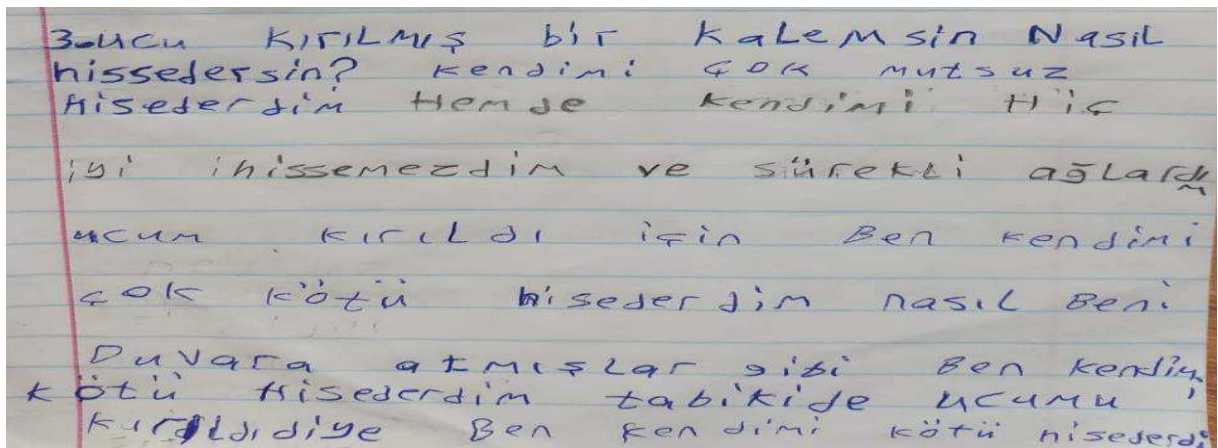 3-ucu KIrILMIş bir KaLEMsin Nasıl
hissedersin? Kendimi çok mutsuz
Hisederdim Hemde kendimi Hiç
iyi ihissemezdim ve sürekli ağLardım
ucum kırıLdı için Ben kendimi
çok kötü hisederdim nasıL Beni
Duvara atmışLar gibi Ben kendimi
kötü Hisederdim tabikide ucumu
kırıLdıdiye Ben kendimi kötü hisederdi